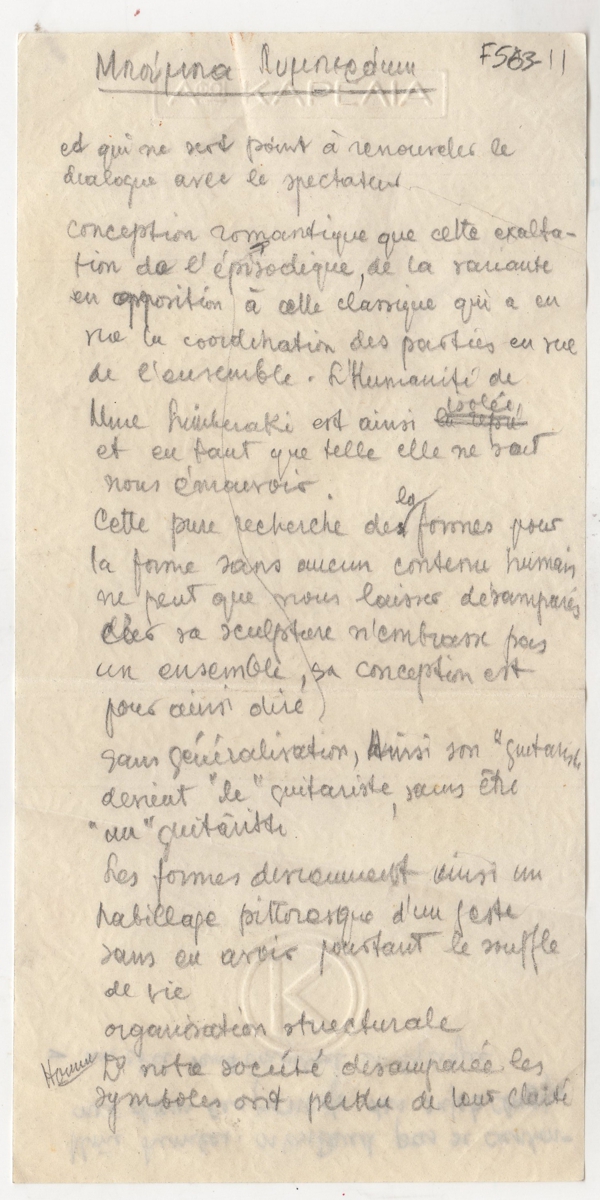 Μπούμπα Λυμπεράκη
F563-11
ΚΑΡΕΛΙΑ
et qui ne sert point à renouveler le
dialogue avec le spectateur
conception romantique que cette exalta-
tion de l'épisodique, de la variante
en opposition à celle classique qui a en
vue la coordination des parties en vue
de l'ensemble. L'Humanité de
Mme Limberaki est ainsi isolée,
et en tant que telle elle ne sait
nous émouvoir.
Cette pure recherche de la formes pour
la forme sans aucun contenu humain
ne peut que nous laisser désamparés
sa sculpture n'embrasse pas
un ensemble, sa conception est
pour ainsi dire
sans généralisation, Ainsi son "guitariste
devient "le" guitariste, sans être
"un" guitariste
Les formes deviennent ainsi un
habillage pittoresque d'un geste
sans en avoir pourtant le souffle
de vie
organisation structurale
Ds notre société desamparée les
symboles ont perdu de leur clarté